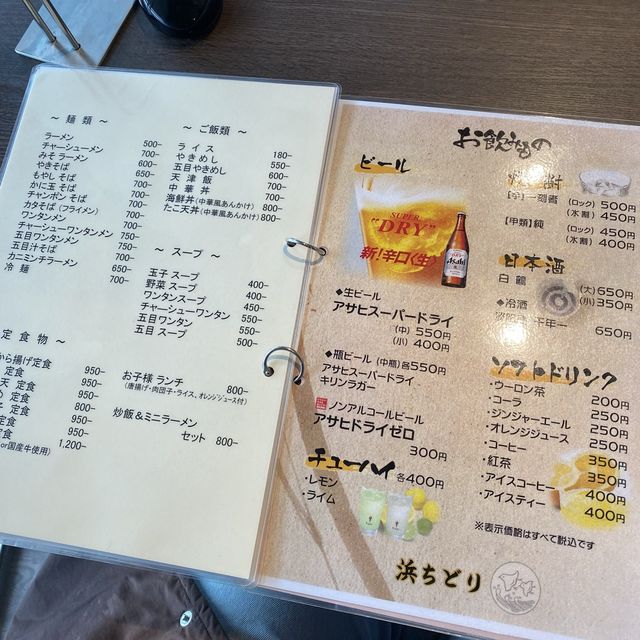 ～ 麺 類 ～
ラーメン 500-
チャーシューメン 700-
みそ ラーメン 600-
やきそば 700-
もやし そば 700-
かに玉 そば 700-
チャンポン そば 700-
カタそば (フライメン) 700-
ワンタンメン
チャーシューワンタンメン
五目ワンタンメン 750-
五目汁そば
カニミンチラーメン 650-
冷 麺 700-
定 食 物 ～
から揚げ定食 950-
定食 950-
天 定食 950-
定食 950-
定食 800-
定食 950-
定食 950-
or国産牛使用) 1,200-
～ ご飯類 ～
ラ イ ス 180-
やきめし 550-
五目やきめし 600-
天 津 飯 700-
中 華 丼 700-
海鮮丼 (中華風あんかけ) 800-
たこ天丼 (中華風あんかけ) 800-
～ スープ ～
玉子 スープ 400-
野菜 スープ 400-
ワンタンスープ 450-
チャーシューワンタン 550-
五目 ワンタン 500-
五目 スープ 500-
お子様 ランチ 800-
(唐揚げ・肉団子・ライス、オレンジジュース付)
炒飯＆ミニラーメン
セット 800-
お飲みもの
ビール
SUPER
"DRY"
新!辛口〈生〉
Asahi
◆生ビール
アサヒスーパードライ
(中) 550円
(小) 400円
◆瓶ビール (中瓶) 各550円
アサヒスーパードライ
キリンラガー
ノンアルコールビール
アサヒドライゼロ
300円
チューハイ 各400円
・レモン
・ライム
(ロック) 500円
(水割) 450円
[甲類] 純 (ロック) 450円
(水割) 400円
日本酒
白 鶴 (大) 650円
(小) 350円
◆冷酒
650円
ソフトドリンク
・ウーロン茶 200円
・コーラ 250円
・ジンジャーエール 250円
・オレンジジュース 250円
・コーヒー 350円
・紅茶 350円
・アイスコーヒー 400円
・アイスティー 400円
※表示価格はすべて税込です
浜ちどり